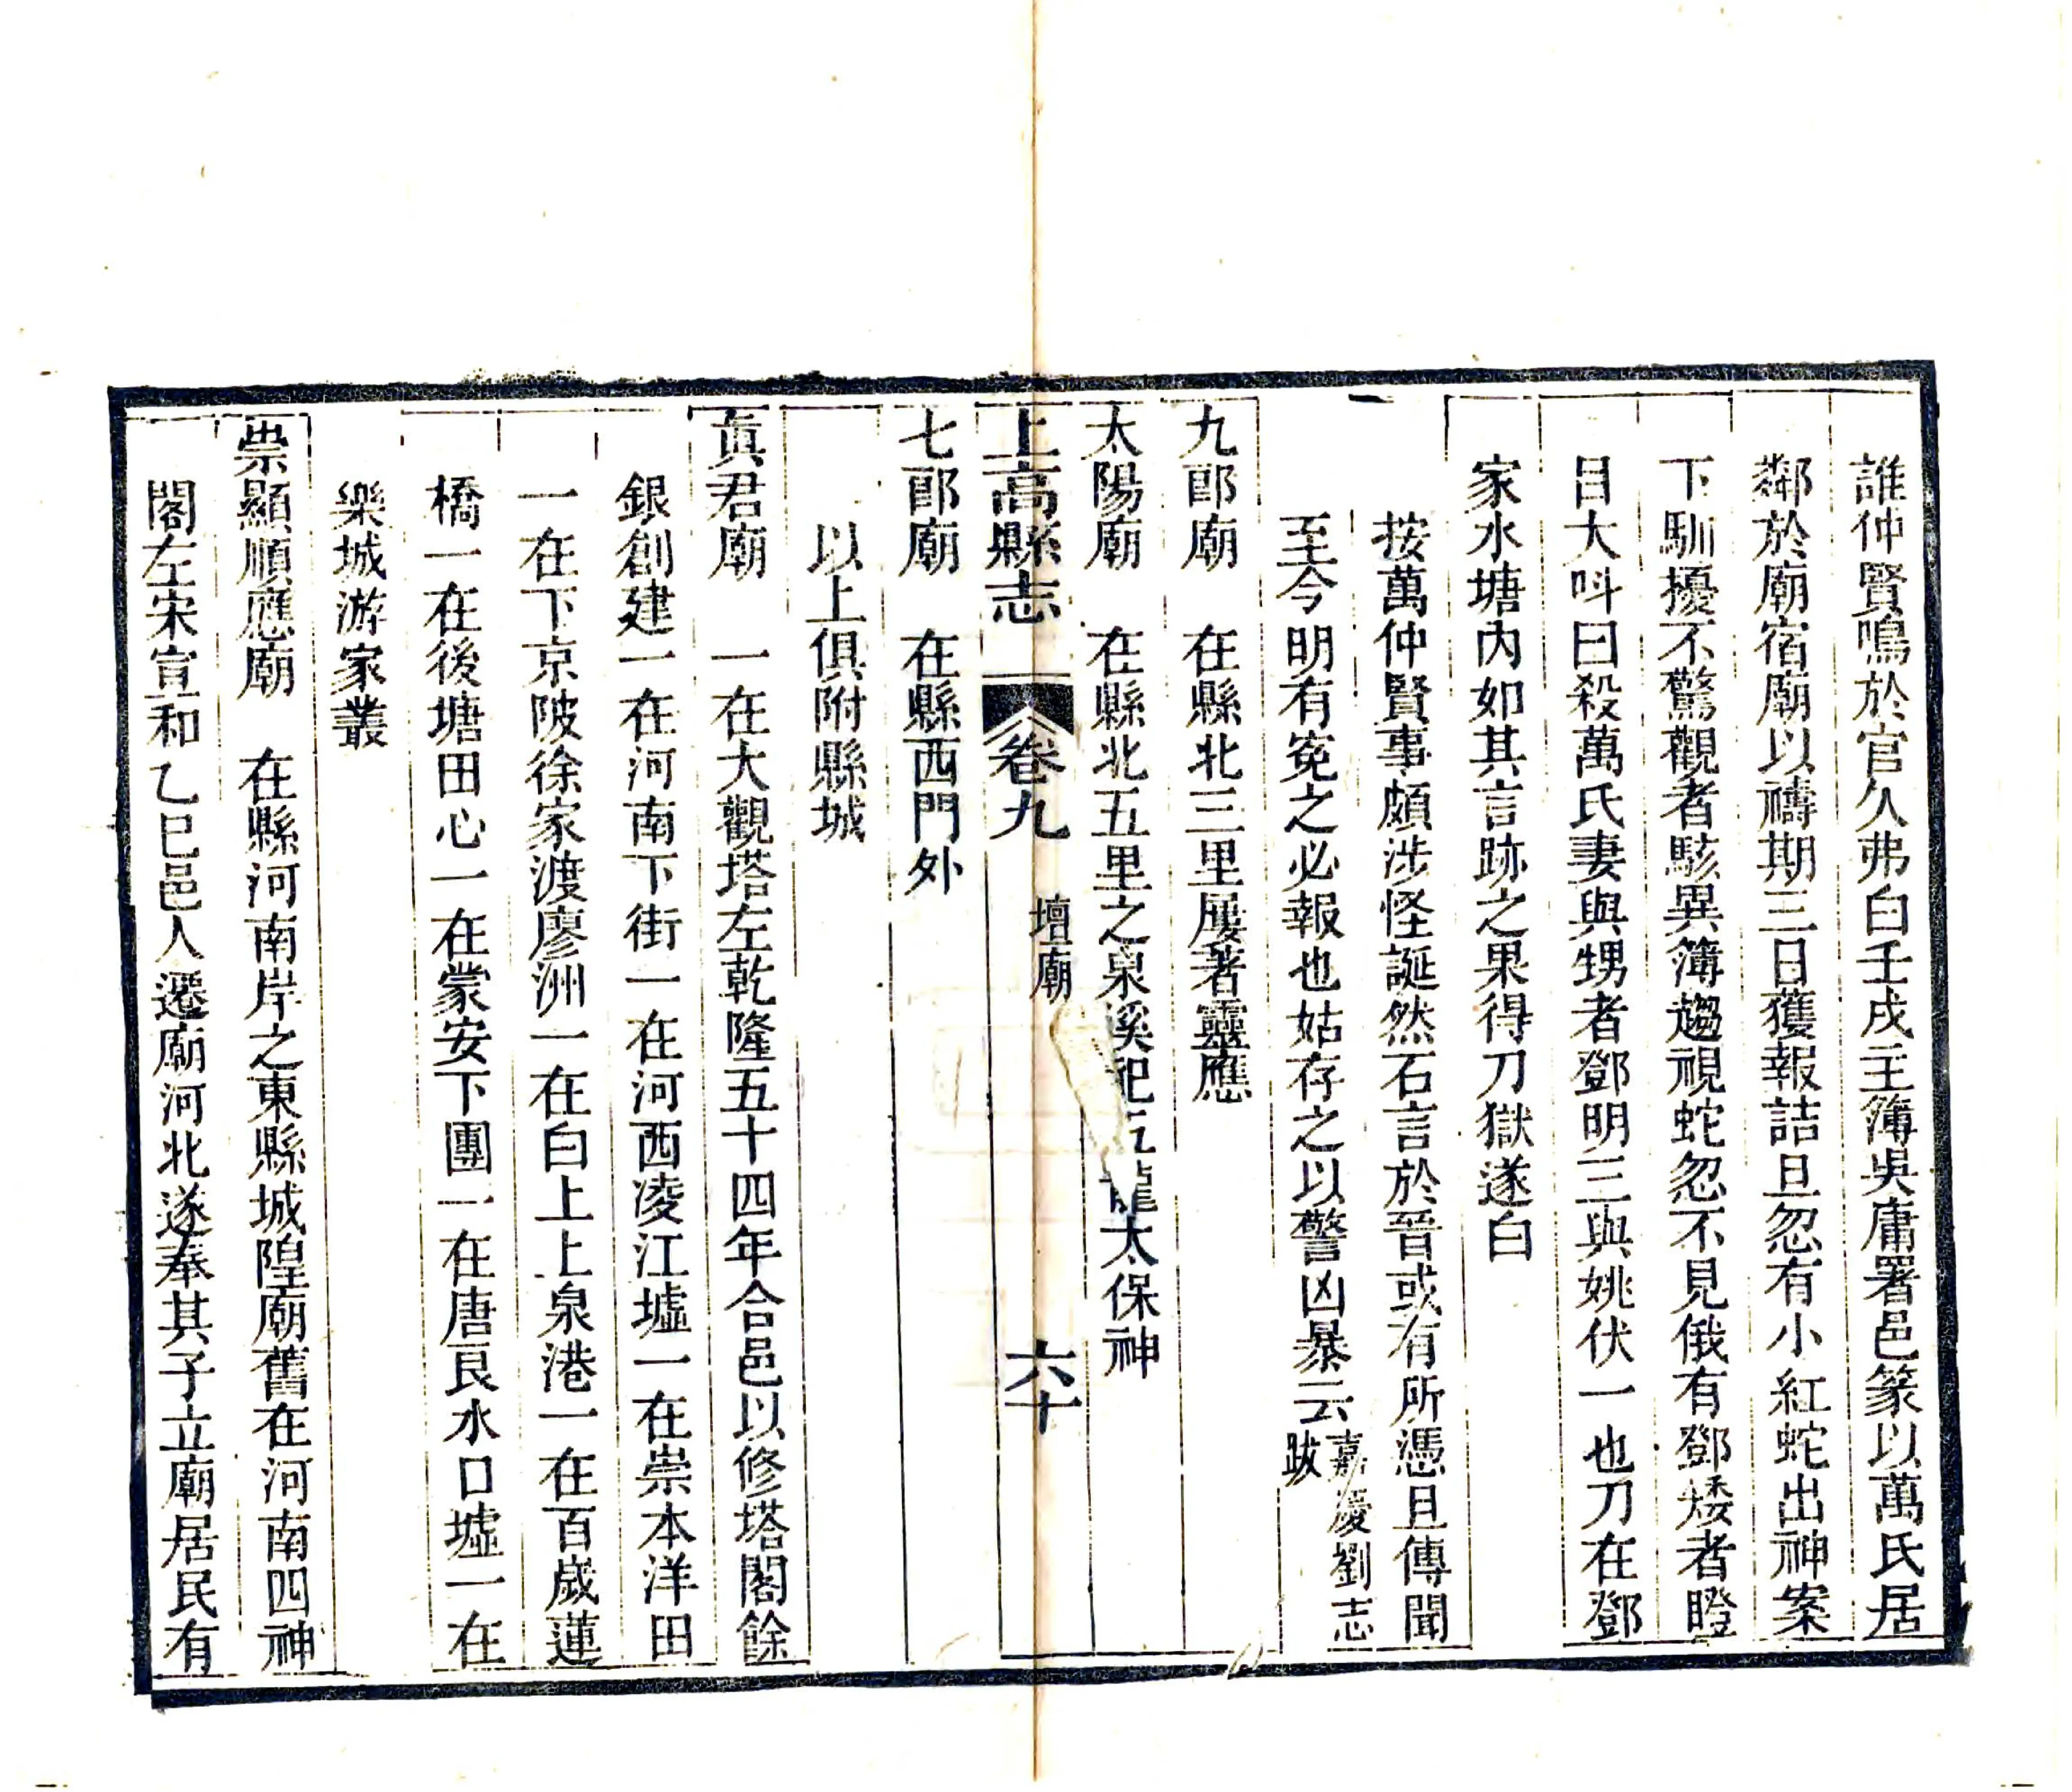 誰仲賢鳴於官久弗白壬戌主簿吳庸署邑篆以萬氏居
鄰於廟宿廟以禱期三日獲報詰旦忽有小紅蛇出神案
下馴擾不驚觀者駭異簿趨視蛇忽不見俄有鄧矮者瞪
目大呌曰殺萬氏妻與甥者鄧明三與姚伏一也刀在鄧
家水塘內如其言跡之果得刀獄遂白
按萬仲賢事頗涉怪誕然石言於晉或有所憑且傳聞
至今明有寃之必報也姑存之以警凶暴云嘉慶劉志跋
九郎廟 在縣北三里屢著靈應
太陽廟 在縣北五里之泉溪祀 龍太保神
上高縣志 卷九 壇廟 六十
七郎廟 在縣西門外
以上俱附縣城
眞君廟 一在大觀塔左乾隆五十四年合邑以修塔閣餘
銀創建一在河南下街一在河西凌江墟一在崇本洋田
一在下京陂徐家渡廖洲一在白上上泉港一在百歲蓮
橋一在後塘田心一在蒙安下團一在唐艮水口墟一在
樂城游家叢
崇顯順應廟 在縣河南岸之東縣城隍廟舊在河南四神
閣左宋宣和乙巳邑人遷廟河北遂奉其子立廟居民有